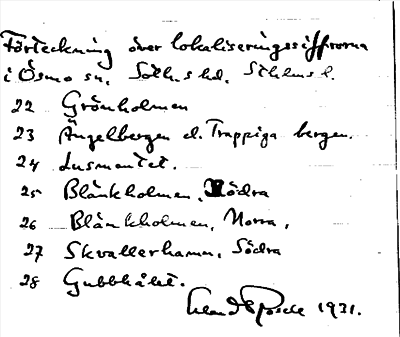 Förteckning över lokaliseringssiffrorna
i Ösmo sn. Soth.s hd. Sthlms l.
22 Grönholmen
23 Ängelbergen el. Trappiga bergen.
24 Lusmontet.
25 Blänkholmen, Södra
26 Blänkholmen, Norra,
27 Skvallerhamn, Södra
28 Gubbhålet.
1931.